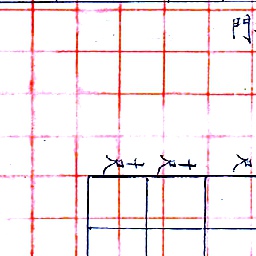 門
尺
十尺
十尺